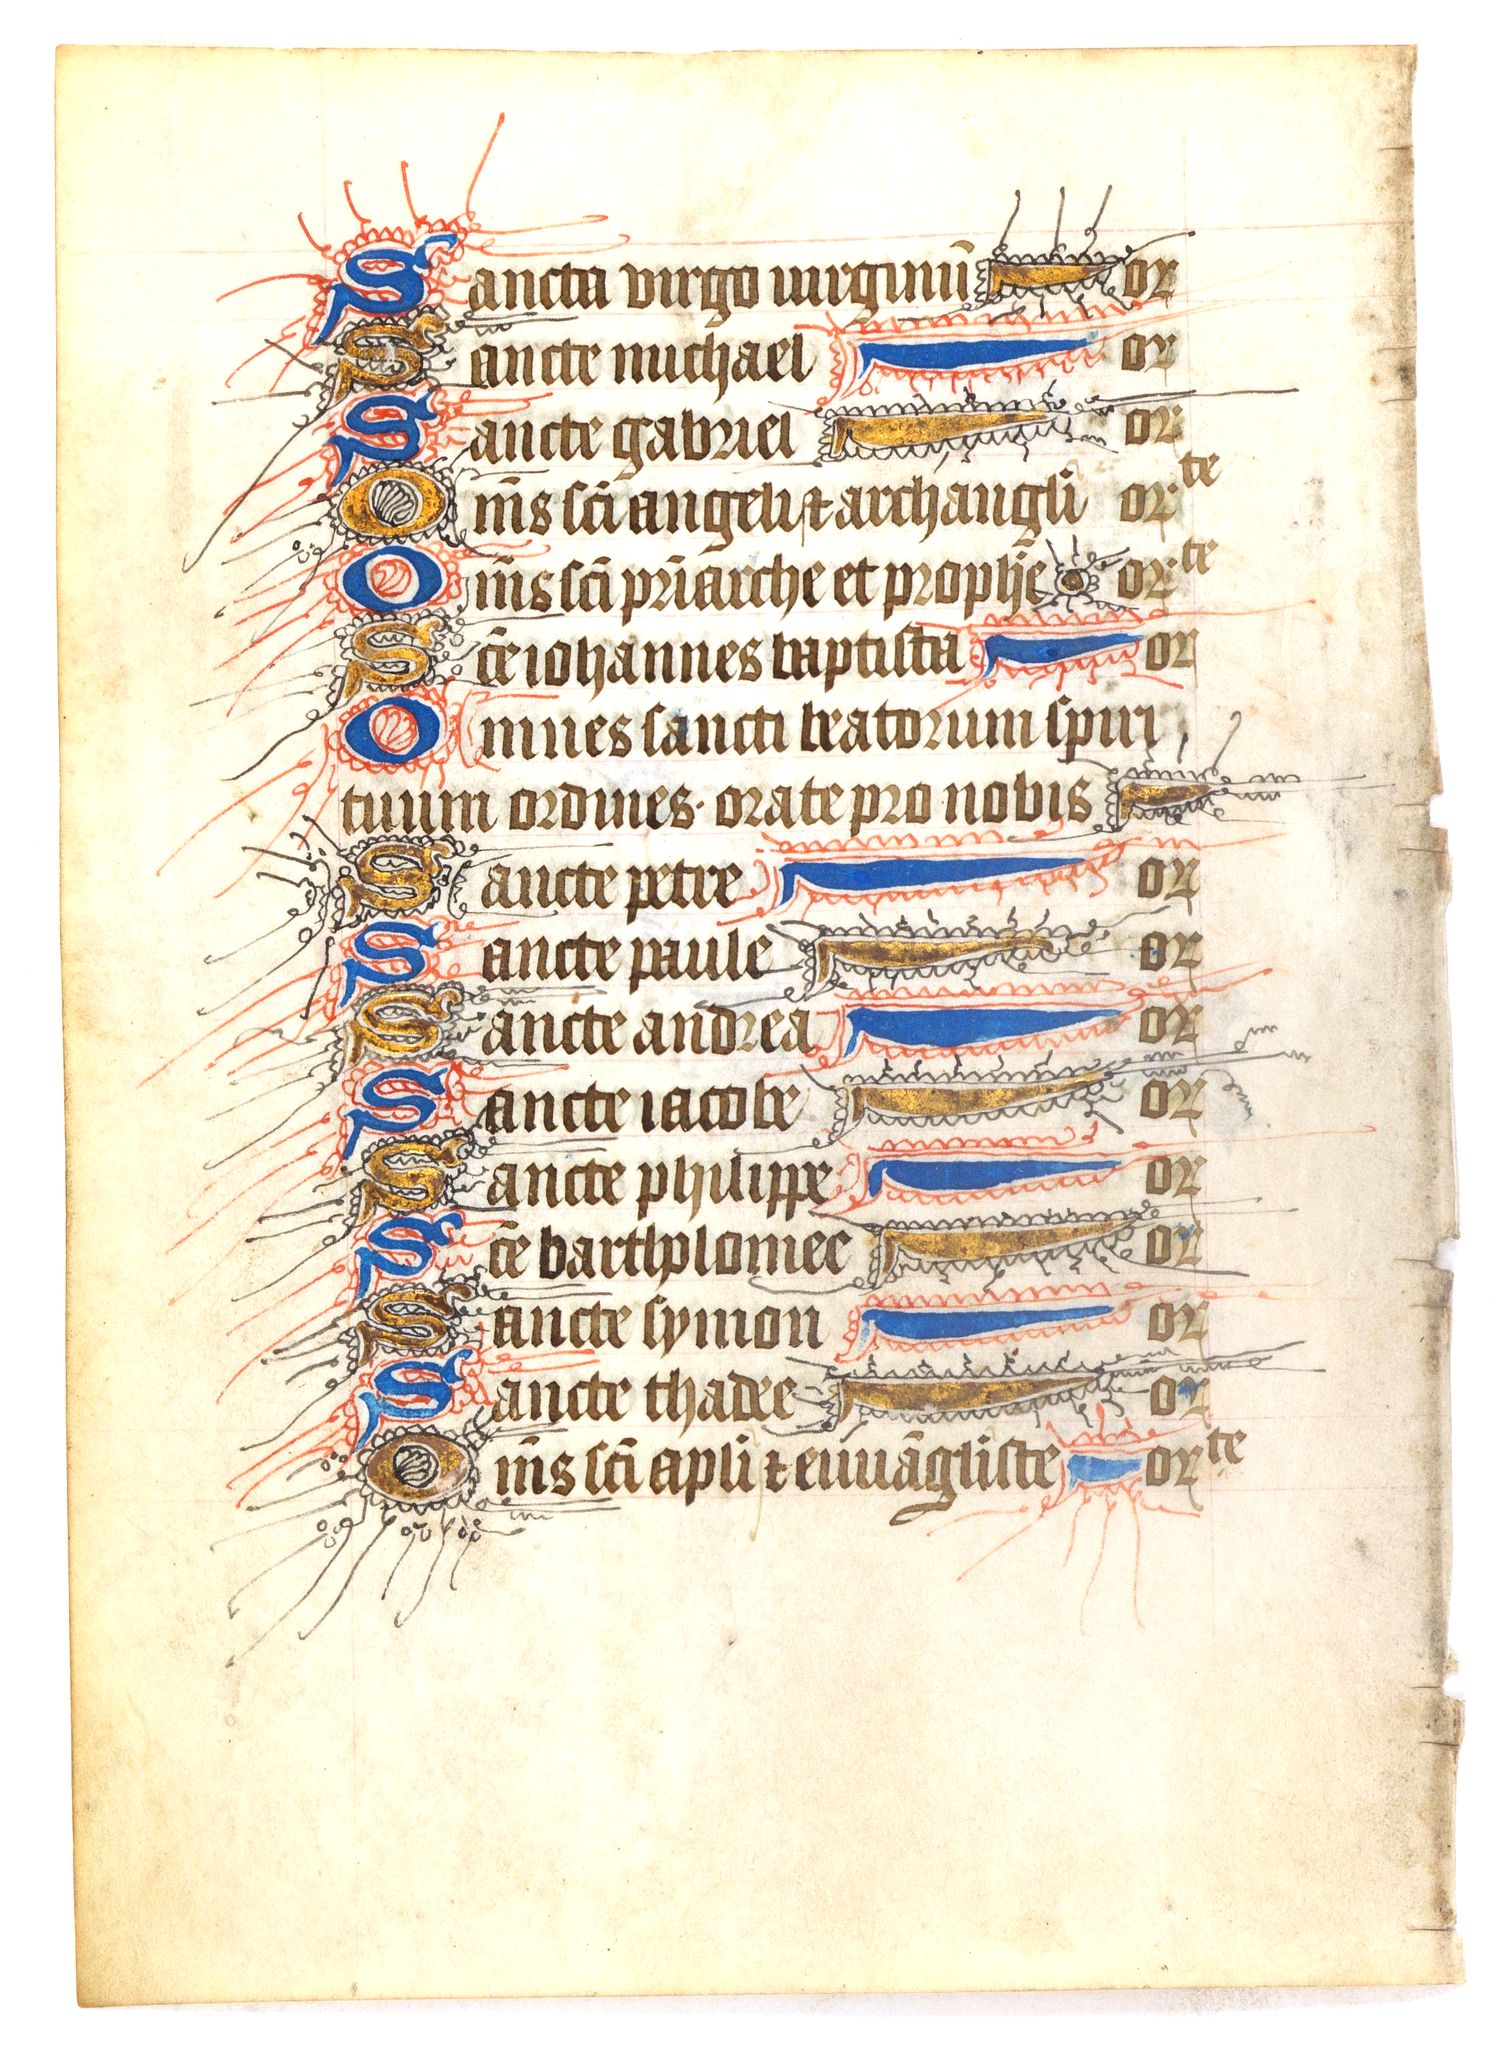 Sancta virgo uirginū or
Sancte michael or
Sancte gabriel or
Om̄s sc̄i angeli ⁊ archāgli orᵗᵉ
Om̄s sc̄i pr̄iarche et prophe orᵗᵉ
Sc̄e iohannes baptista or
Omnes sancti beatorum spiri
tuum ordines· orate pro nobis
Sancte petre or
Sancte paule or
Sancte andrea or
Sancte iacobe or
Sancte philippe or
Sc̄e bartholomee or
Sancte symon or
Sancte thadee or
Om̄s sc̄i apl̄i ⁊ euuāgliste orᵗᵉ